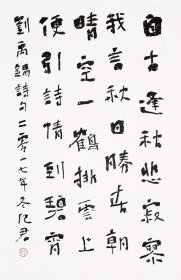 自古逢秋悲寂寥
我言秋日勝春朝
晴空一鶴排雲上
便引詩情到碧霄
劉禹錫詩句二零一七年冬君